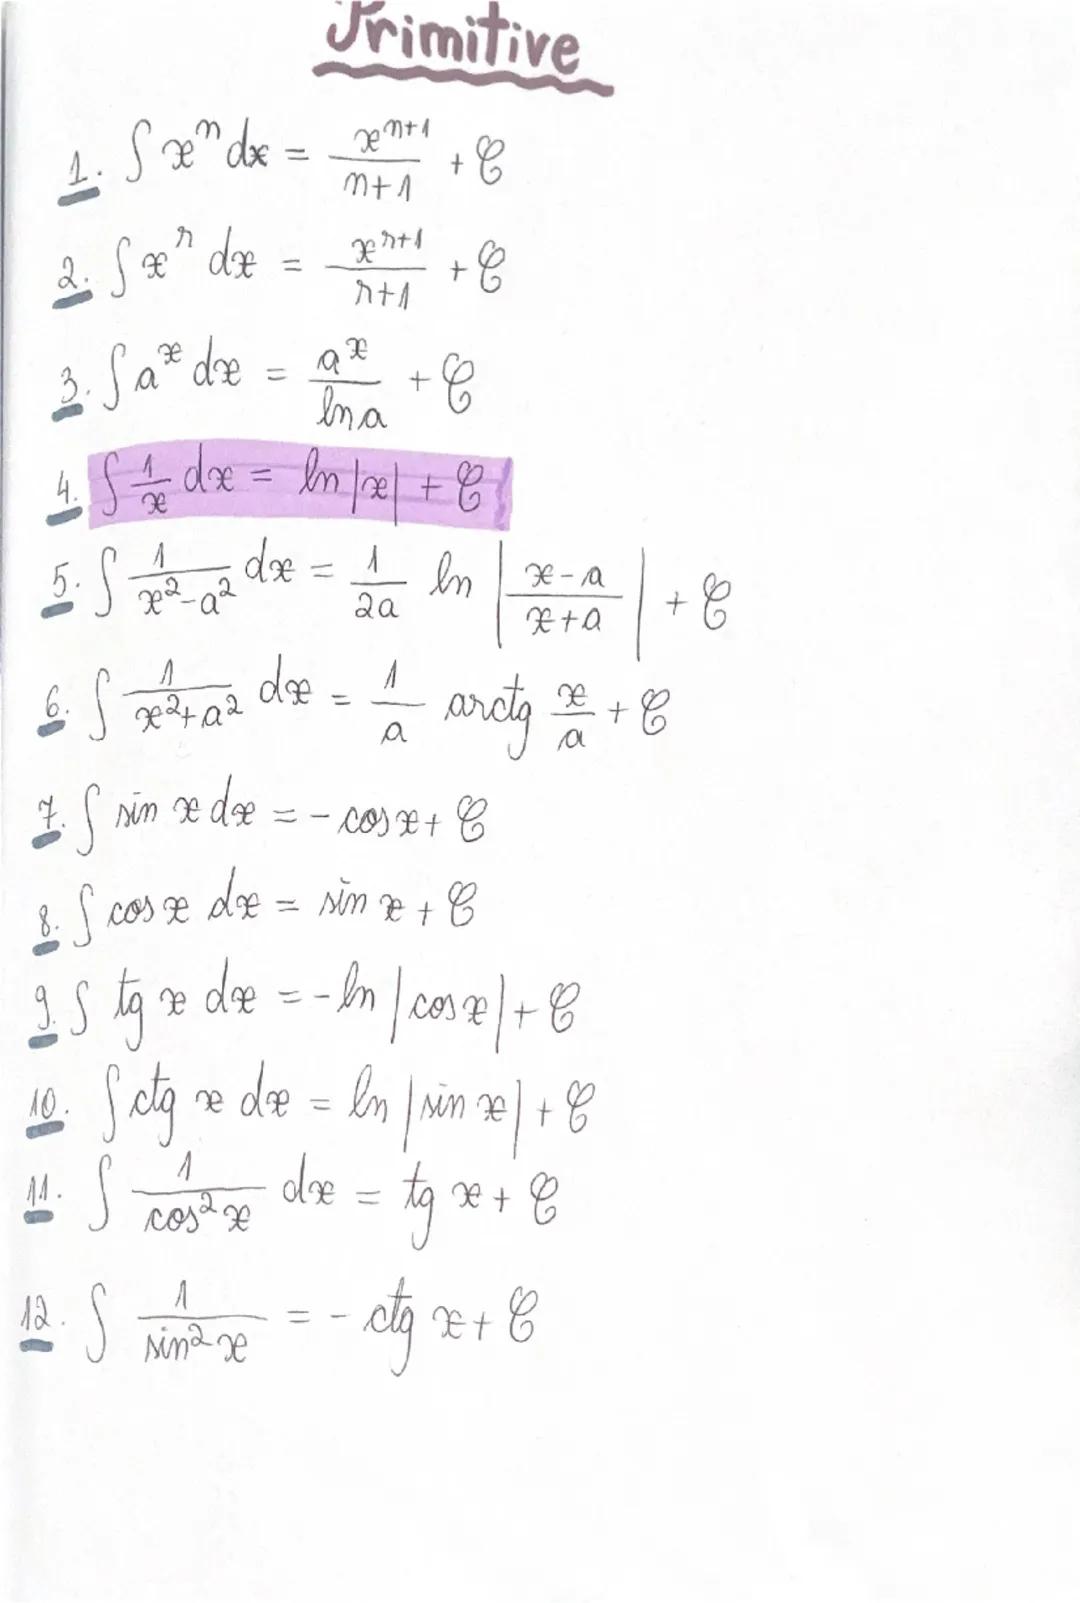 Primitive
1. ∫ xⁿ dx = xⁿ⁺¹/n+1 + C
2. ∫ xʳ dx = xʳ⁺¹/r+1 + C
3. ∫ aˣ dx = aˣ/ln a + C
4. ∫ 1/x dx = ln |x| + C
5. ∫ 1/x²-a² dx = 1/2a ln |x-a/x+a| + C
6. ∫ 1/x²+a² dx = 1/a arctg x/a + C
7. ∫ sin x dx = - cos x + C
8. ∫ cos x dx = sin x + C
9. ∫ tg x dx = - ln |cos x| + C
10. ∫ ctg x dx = ln |sin x| + C
11. ∫ 1/cos² x dx = tg x + C
12. ∫ 1/sin² x = - ctg x + C